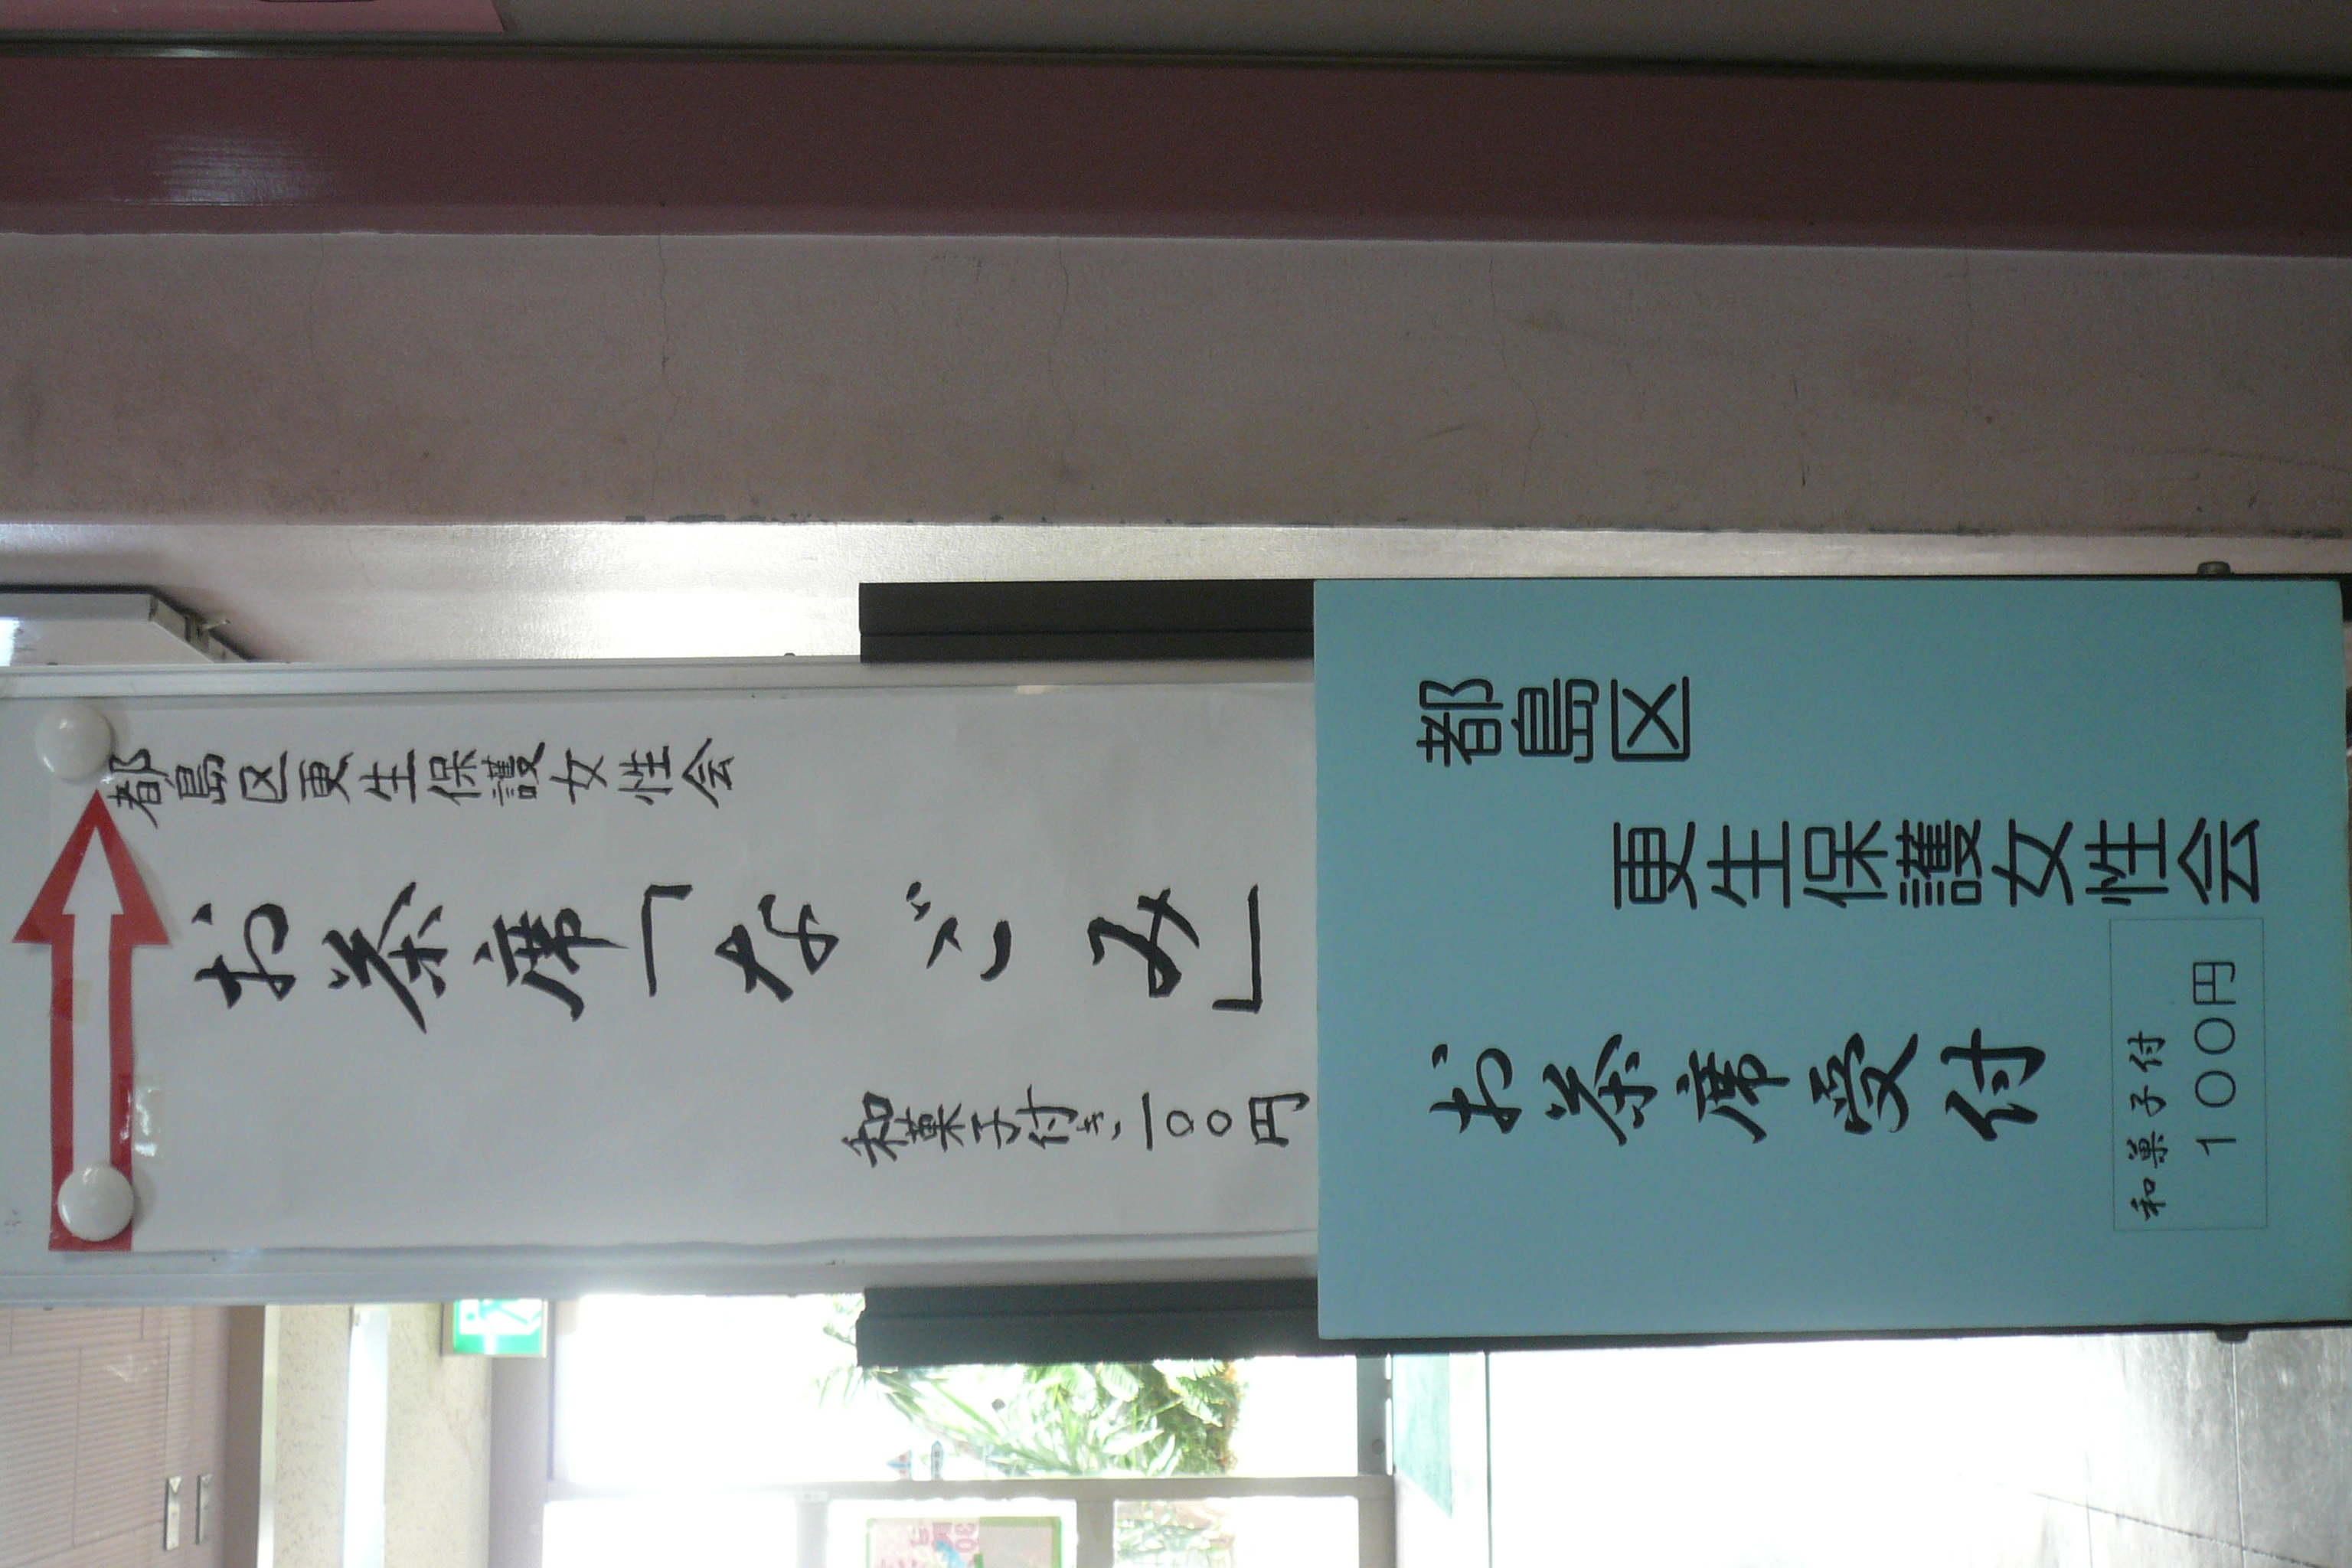 都島区更生保護女性会
お茶席「なごみ」
和菓子付き、一〇〇円
都島区
更生保護女性会
お茶席受付
和菓子付
100円